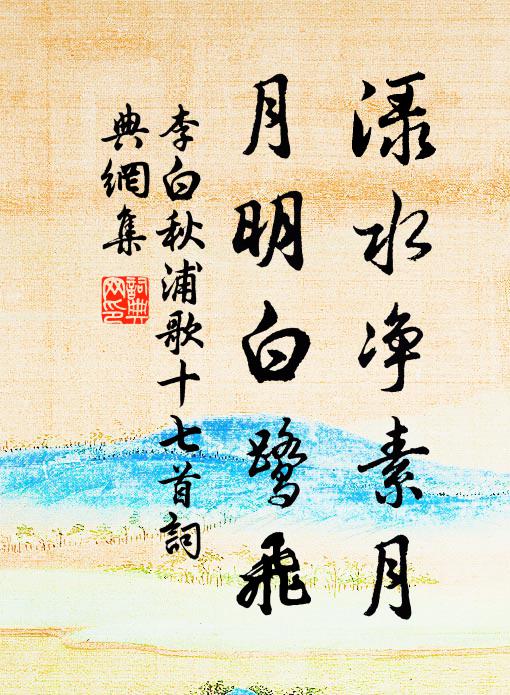 淥水净素月
月明白鷺飛
李白秋浦歌十七首詞
典網集
詞典
网印